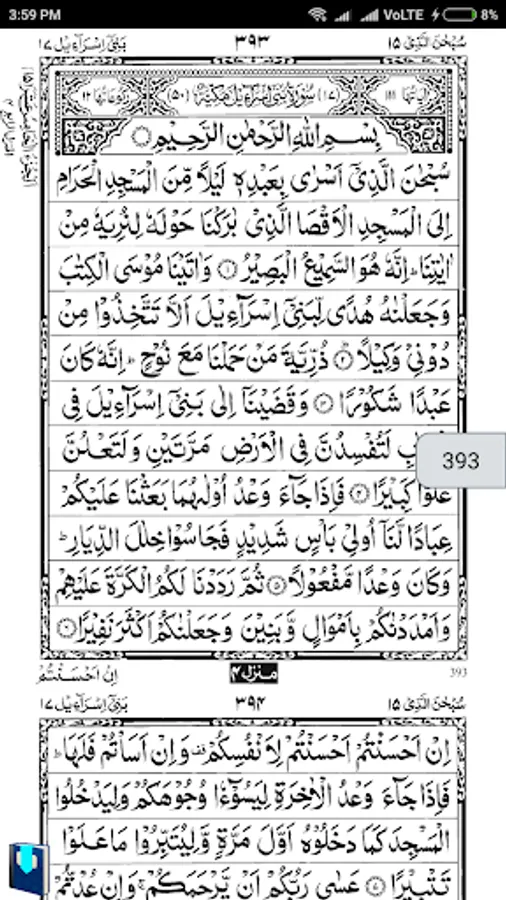 3:59 PM VoLTE 8%
بَنِیْٓ اِسْرَآءِیْل ۱۷ ۳۹۳ سُبْحٰنَ الَّذِیْ ۱۵
اٰیَاتُهَا ۱۱۱ (۱۷) سُوْرَةُ بَنِیْٓ اِسْرَآءِیْلَ مَكِّیَّةٌ (۵۰) رُكُوْعَاتُهَا ۱۲
بِسْمِ اللّٰهِ الرَّحْمٰنِ الرَّحِیْمِ
سُبْحٰنَ الَّذِیْۤ اَسْرٰی بِعَبْدِهٖ لَیْلًا مِّنَ الْمَسْجِدِ الْحَرَامِ
اِلَی الْمَسْجِدِ الْاَقْصَا الَّذِیْ بٰرَكْنَا حَوْلَهٗ لِنُرِیَهٗ مِنْ
اٰیٰتِنَا ؕ اِنَّهٗ هُوَ السَّمِیْعُ الْبَصِیْرُ ۱ وَاٰتَیْنَا مُوْسَی الْكِتٰبَ
وَجَعَلْنٰهُ هُدًی لِّبَنِیْۤ اِسْرَآءِیْلَ اَلَّا تَتَّخِذُوْا مِنْ
دُوْنِیْ وَكِیْلًا ۲ ذُرِّیَّةَ مَنْ حَمَلْنَا مَعَ نُوْحٍ ؕ اِنَّهٗ كَانَ
عَبْدًا شَكُوْرًا ۳ وَقَضَیْنَاۤ اِلٰی بَنِیْۤ اِسْرَآءِیْلَ فِی
لَتُفْسِدُنَّ فِی الْاَرْضِ مَرَّتَیْنِ وَلَتَعْلُنَّ
عُلُوًّا كَبِیْرًا ۴ فَاِذَا جَآءَ وَعْدُ اُوْلٰىهُمَا بَعَثْنَا عَلَیْكُمْ
393
عِبَادًا لَّنَاۤ اُولِیْ بَاْسٍ شَدِیْدٍ فَجَاسُوْا خِلٰلَ الدِّیَارِ ؕ
وَكَانَ وَعْدًا مَّفْعُوْلًا ۵ ثُمَّ رَدَدْنَا لَكُمُ الْكَرَّةَ عَلَیْهِمْ
وَاَمْدَدْنٰكُمْ بِاَمْوَالٍ وَّبَنِیْنَ وَجَعَلْنٰكُمْ اَكْثَرَ نَفِیْرًا ۶
اِنْ اَحْسَنْتُمْ منزل ۴ 393
بَنِیْٓ اِسْرَآءِیْل ۱۷ ۳۹۴ سُبْحٰنَ الَّذِیْ ۱۵
اِنْ اَحْسَنْتُمْ اَحْسَنْتُمْ لِاَنْفُسِكُمْ ۫ وَاِنْ اَسَاْتُمْ فَلَهَا ؕ
فَاِذَا جَآءَ وَعْدُ الْاٰخِرَةِ لِیَسُوْٓءٗا وُجُوْهَكُمْ وَلِیَدْخُلُوا
الْمَسْجِدَ كَمَا دَخَلُوْهُ اَوَّلَ مَرَّةٍ وَّلِیُتَبِّرُوْا مَا عَلَوْا
تَتْبِیْرًا ۷ عَسٰی رَبُّكُمْ اَنْ یَّرْحَمَكُمْ ۚ وَاِنْ عُدْتُّمْ